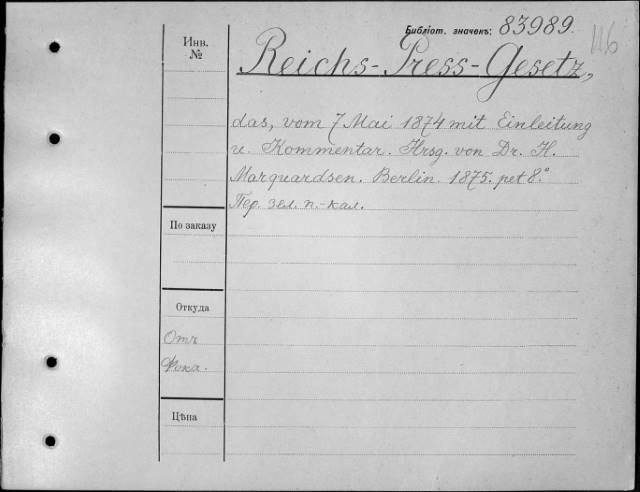 Библіот. значекъ: 83989.
116
Инв. №
Reichs-Press-Gesetz,
das, vom 7 Mai 1874 mit Einleitung
u. Kommentar. Hrsg. von Dr. H.
Marquardsen. Berlin. 1875. pet 8.°
Пер. зел. п.-кал.
По заказу
Откуда
Отъ
Фока.
Цѣна